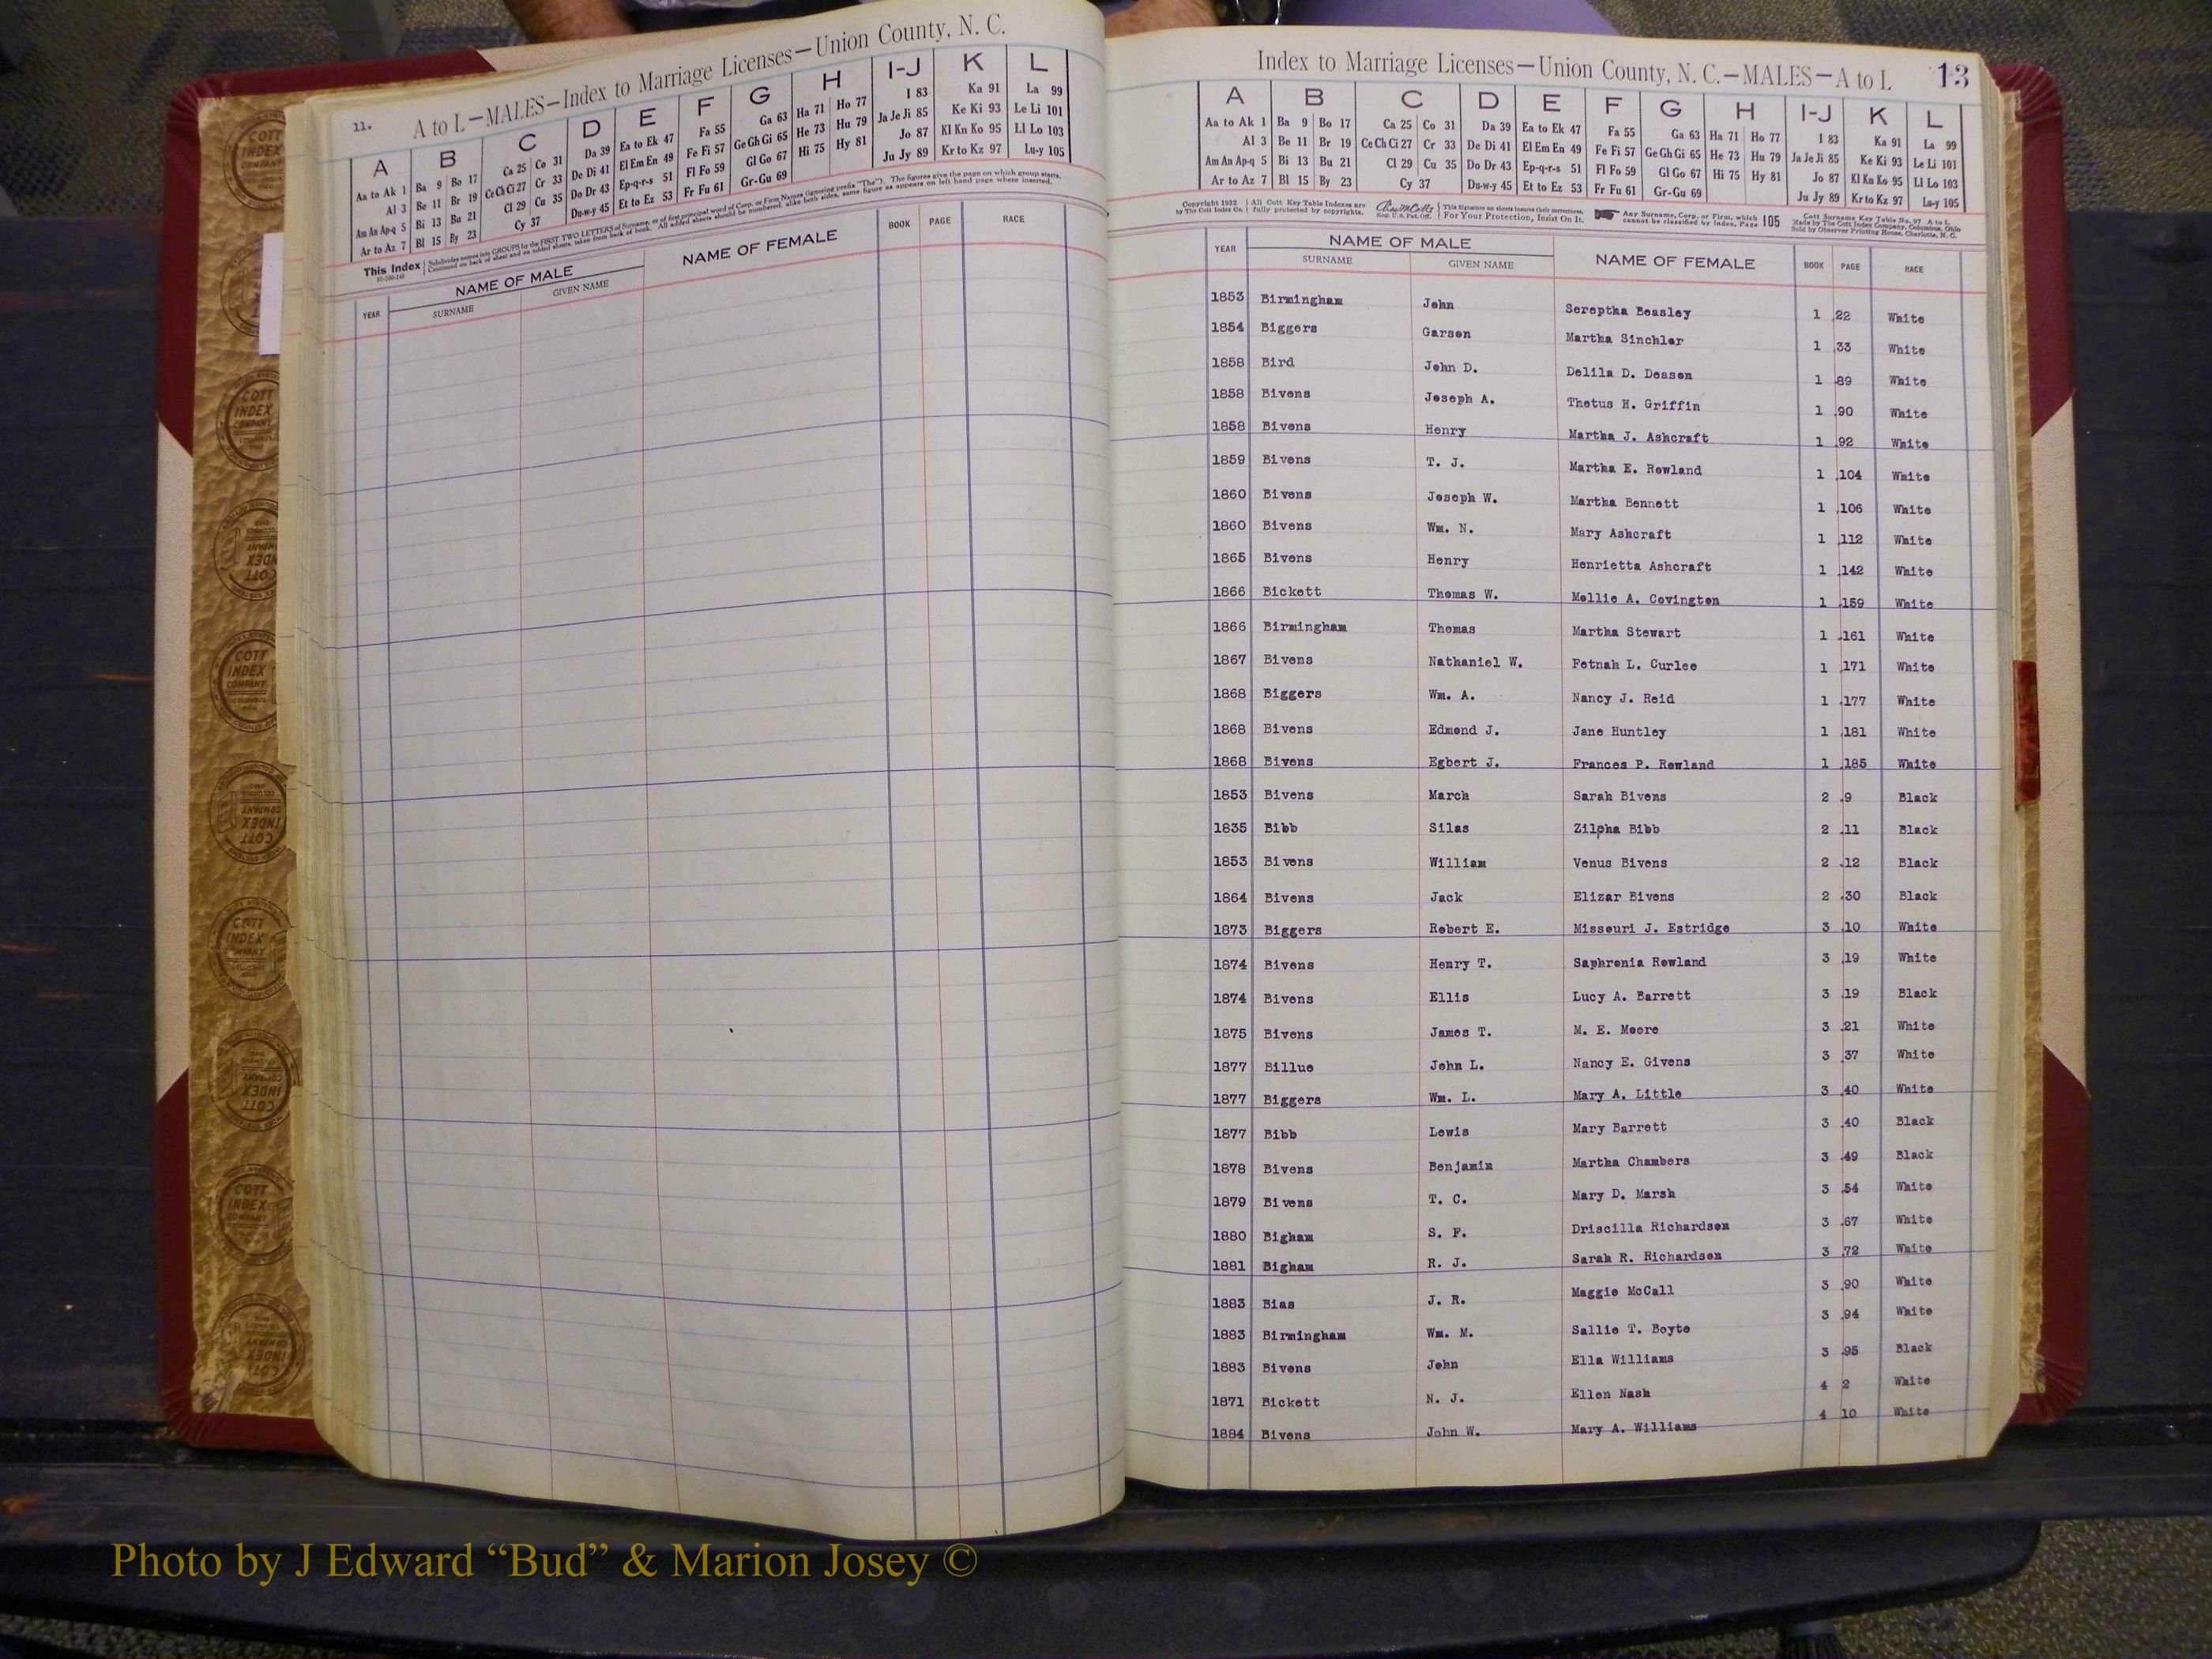 11.
A to L—MALES—Index to Marriage Licenses—Union County, N. C.
A B C D E F G H I-J K L
Aa to Ak 1 Ba 9 Bo 17 Ca 25 Co 31 Da 39 Ea to Ek 47 Fa 55 Ga 63 Ha 71 Ho 77 I 83 Ka 91 La 99
Al 3 Be 11 Br 19 Ce Ch Ci 27 Cr 33 De Di 41 El Em En 49 Fe Fi 57 Ge Gh Gi 65 He 73 Hu 79 Ja Je Ji 85 Ke Ki 93 Le Li 101
Am An Ap-q 5 Bi 13 Bu 21 Cl 29 Cu 35 Do Dr 43 Ep-q-r-s 51 Fl Fo 59 Gl Go 67 Hi 75 Hy 81 Jo 87 Kl Kn Ko 95 Ll Lo 103
Ar to Az 7 Bl 15 By 23 Cy 37 Du-w-y 45 Et to Ez 53 Fr Fu 61 Gr-Gu 69 Ju Jy 89 Kr to Kz 97 Lu-y 105
This Index Subdivides names into GROUPS by the FIRST TWO LETTERS of Surname, or of first principal word of Corp. or Firm Names (ignoring prefix "The"). The figures give the page on which group starts.
Continued on back of sheet and on added sheets, taken from back of book. All added sheets should be numbered, alike both sides, same figure as appears on left hand page where inserted.
YEAR NAME OF MALE NAME OF FEMALE BOOK PAGE RACE
SURNAME GIVEN NAME
Index to Marriage Licenses—Union County, N. C.—MALES—A to L 13
A B C D E F G H I-J K L
Aa to Ak 1 Ba 9 Bo 17 Ca 25 Co 31 Da 39 Ea to Ek 47 Fa 55 Ga 63 Ha 71 Ho 77 I 83 Ka 91 La 99
Al 3 Be 11 Br 19 Ce Ch Ci 27 Cr 33 De Di 41 El Em En 49 Fe Fi 57 Ge Gh Gi 65 He 73 Hu 79 Ja Je Ji 85 Ke Ki 93 Le Li 101
Am An Ap-q 5 Bi 13 Bu 21 Cl 29 Cu 35 Do Dr 43 Ep-q-r-s 51 Fl Fo 59 Gl Go 67 Hi 75 Hy 81 Jo 87 Kl Kn Ko 95 Ll Lo 103
Ar to Az 7 Bl 15 By 23 Cy 37 Du-w-y 45 Et to Ez 53 Fr Fu 61 Gr-Gu 69 Ju Jy 89 Kr to Kz 97 Lu-y 105
Copyright 1932 All Cott Key Table Indexes are This Signature on sheets insures their correctness. Any Surname, Corp. or Firm, which 105 Cott Surname Key Table No. 97 A to L
by The Cott Index Co. fully protected by copyrights. Reg. U.S. Pat. Off. For Your Protection, Insist On It. cannot be classified by Index, Page Made by The Cott Index Company, Columbus, Ohio
Sold by Observer Printing House, Charlotte, N. C.
YEAR NAME OF MALE NAME OF FEMALE BOOK PAGE RACE
SURNAME GIVEN NAME
1853 Birmingham John Sereptha Beasley 1 22 White
1854 Biggers Garson Martha Sinchler 1 33 White
1858 Bird John D. Delila D. Deason 1 89 White
1858 Bivens Joseph A. Thetus H. Griffin 1 90 White
1858 Bivens Henry Martha J. Ashcraft 1 92 White
1859 Bivens T. J. Martha E. Rowland 1 104 White
1860 Bivens Joseph W. Martha Bennett 1 106 White
1860 Bivens Wm. N. Mary Ashcraft 1 112 White
1865 Bivens Henry Henrietta Ashcraft 1 142 White
1866 Bickett Thomas W. Mollie A. Covington 1 159 White
1866 Birmingham Thomas Martha Stewart 1 161 White
1867 Bivens Nathaniel W. Fetnah L. Curlee 1 171 White
1868 Biggers Wm. A. Nancy J. Reid 1 177 White
1868 Bivens Edmond J. Jane Huntley 1 181 White
1868 Bivens Egbert J. Frances P. Rowland 1 185 White
1853 Bivens March Sarah Bivens 2 9 Black
1835 Bibb Silas Zilpha Bibb 2 11 Black
1853 Bivens William Venus Bivens 2 12 Black
1864 Bivens Jack Elizar Bivens 2 30 Black
1873 Biggers Robert E. Missouri J. Estridge 3 10 White
1874 Bivens Henry T. Saphronia Rowland 3 19 White
1874 Bivens Ellis Lucy A. Barrett 3 19 Black
1875 Bivens James T. M. E. Moore 3 21 White
1877 Billue John L. Nancy E. Givens 3 37 White
1877 Biggers Wm. L. Mary A. Little 3 40 White
1877 Bibb Lewis Mary Barrett 3 40 Black
1878 Bivens Benjamin Martha Chambers 3 49 Black
1879 Bivens T. C. Mary D. Marsh 3 54 White
1880 Bigham S. F. Driscilla Richardson 3 67 White
1881 Bigham R. J. Sarah R. Richardson 3 72 White
1883 Bias J. R. Maggie McCall 3 90 White
1883 Birmingham Wm. M. Sallie T. Boyte 3 94 White
1883 Bivens John Ella Williams 3 95 Black
1871 Bickett N. J. Ellen Nash 4 2 White
1884 Bivens John W. Mary A. Williams 4 10 White
COTT INDEX COMPANY
Photo by J Edward “Bud” & Marion Josey ©